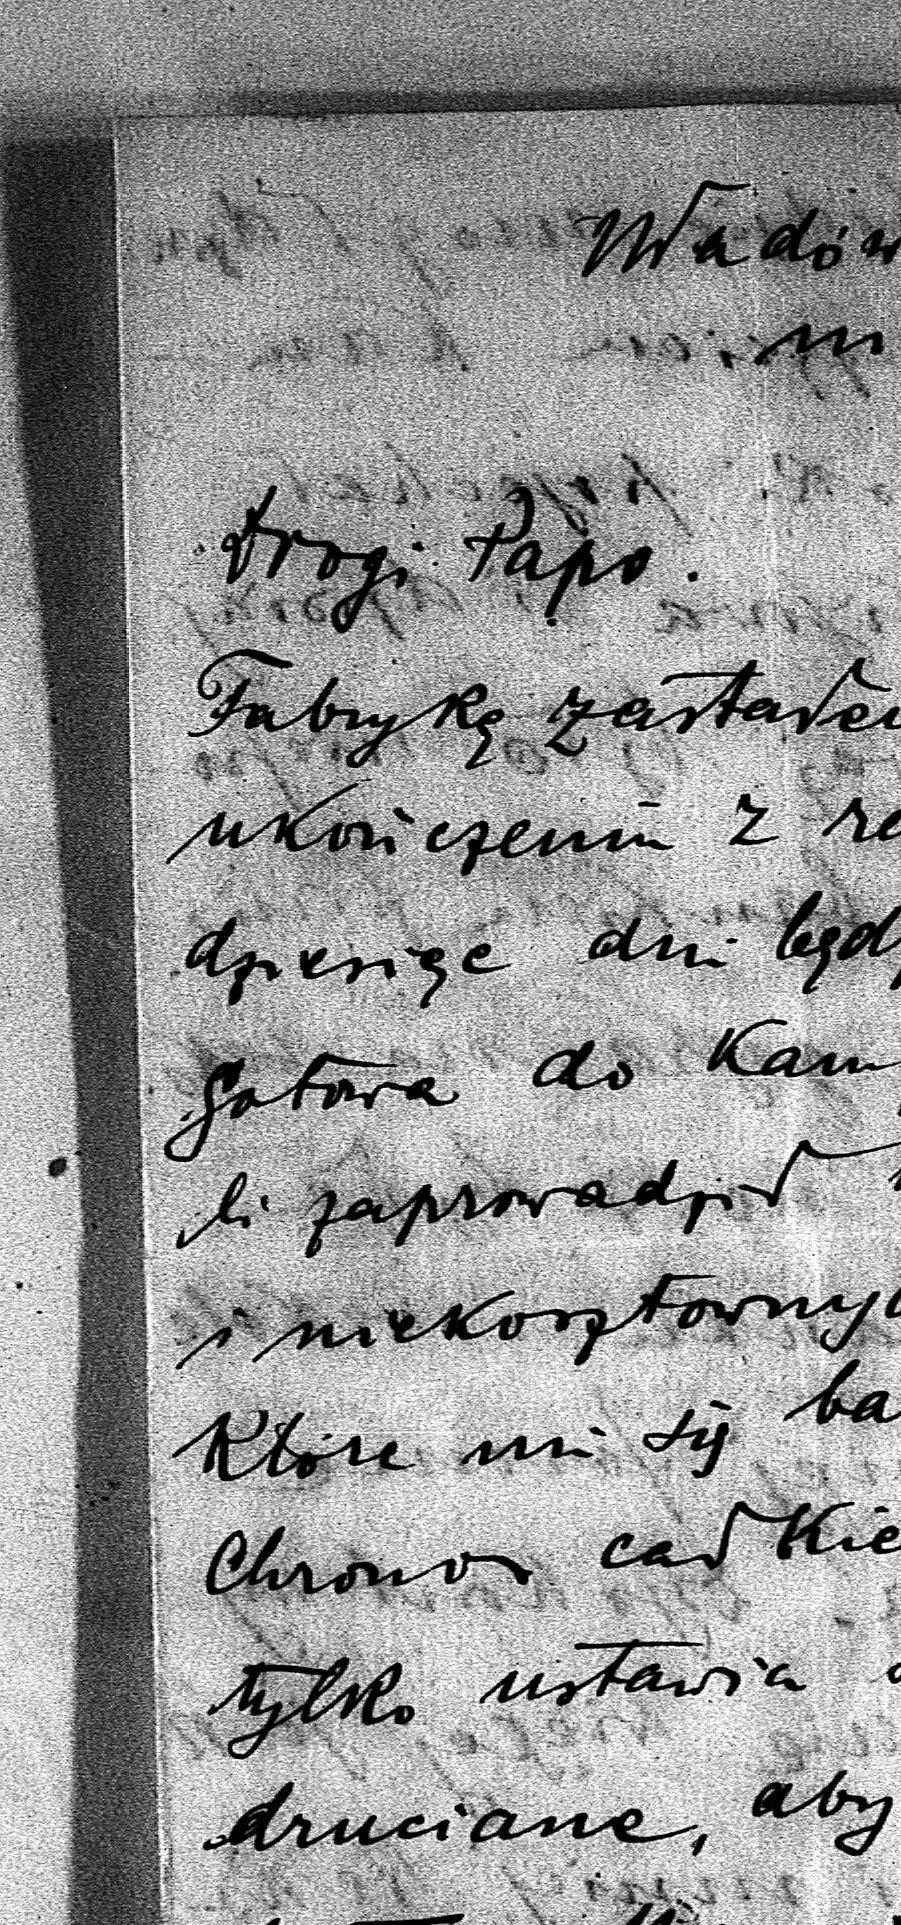 Wadów
m
Drogi Papo.
Fabrykę zastałem
ukończeniu z re
dziesięć dni będz
gotowa do Kam
li zaprowadził
i niekosztowny
które mi się ba
Chromo cał Kie
tylko ustawia
druciane, aby